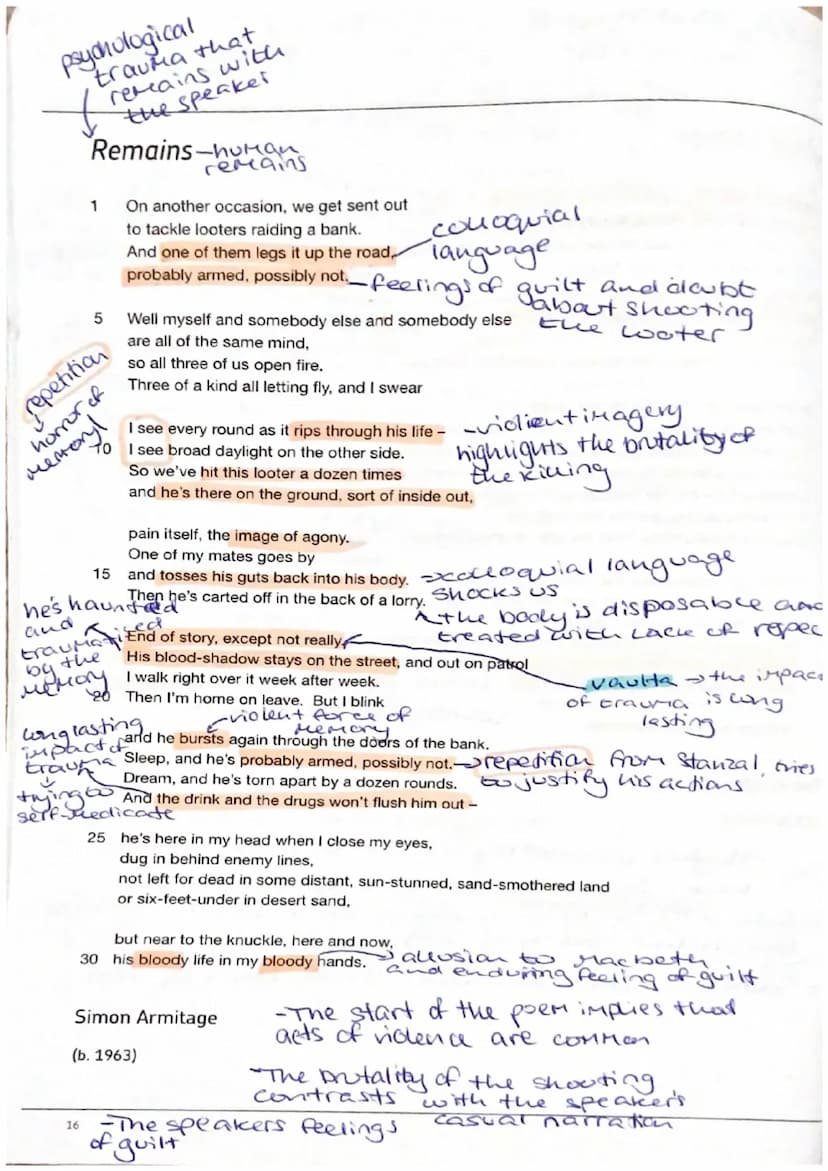 psychological
trauma that
remains with
the speaker
Remains – human
remains
1 On another occasion, we get sent out
to tackle looters raiding a bank.
And one of them legs it up the road,
probably armed, possibly not.
colloquial
language
– feelings of guilt and doubt
about shooting
the looter
5 Well myself and somebody else and somebody else
are all of the same mind,
so all three of us open fire.
Three of a kind all letting fly, and I swear
repetition
horror of
memory
I see every round as it rips through his life –
10 I see broad daylight on the other side.
So we've hit this looter a dozen times
and he's there on the ground, sort of inside out,
- violient imagery
highlights the brutality of
the killing
pain itself, the image of agony.
One of my mates goes by
15 and tosses his guts back into his body.
Then he's carted off in the back of a lorry.
colloquial language
shocks us
the body is disposable and
treated with lack of repec
he's haunted
and
traumatised
by the
memory
End of story, except not really.
His blood-shadow stays on the street, and out on patrol
I walk right over it week after week.
20 Then I'm home on leave. But I blink
vaulta → the impac
of trauma is long
lasting
violent force of
memory
long lasting
impact of
trauma
trying to
self-medicate
and he bursts again through the doors of the bank.
Sleep, and he's probably armed, possibly not.
Dream, and he's torn apart by a dozen rounds.
And the drink and the drugs won't flush him out –
→ repetition from Stanza1, tries
to justify his actions
25 he's here in my head when I close my eyes,
dug in behind enemy lines,
not left for dead in some distant, sun-stunned, sand-smothered land
or six-feet-under in desert sand,
but near to the knuckle, here and now,
30 his bloody life in my bloody hands.
allusion to Macbeth
and enduring feeling of guilt
Simon Armitage
(b. 1963)
- The start of the poem implies that
acts of violence are common
- The brutality of the shooting
contrasts with the speaker's
casual narration
16
- The speakers feelings
of guilt